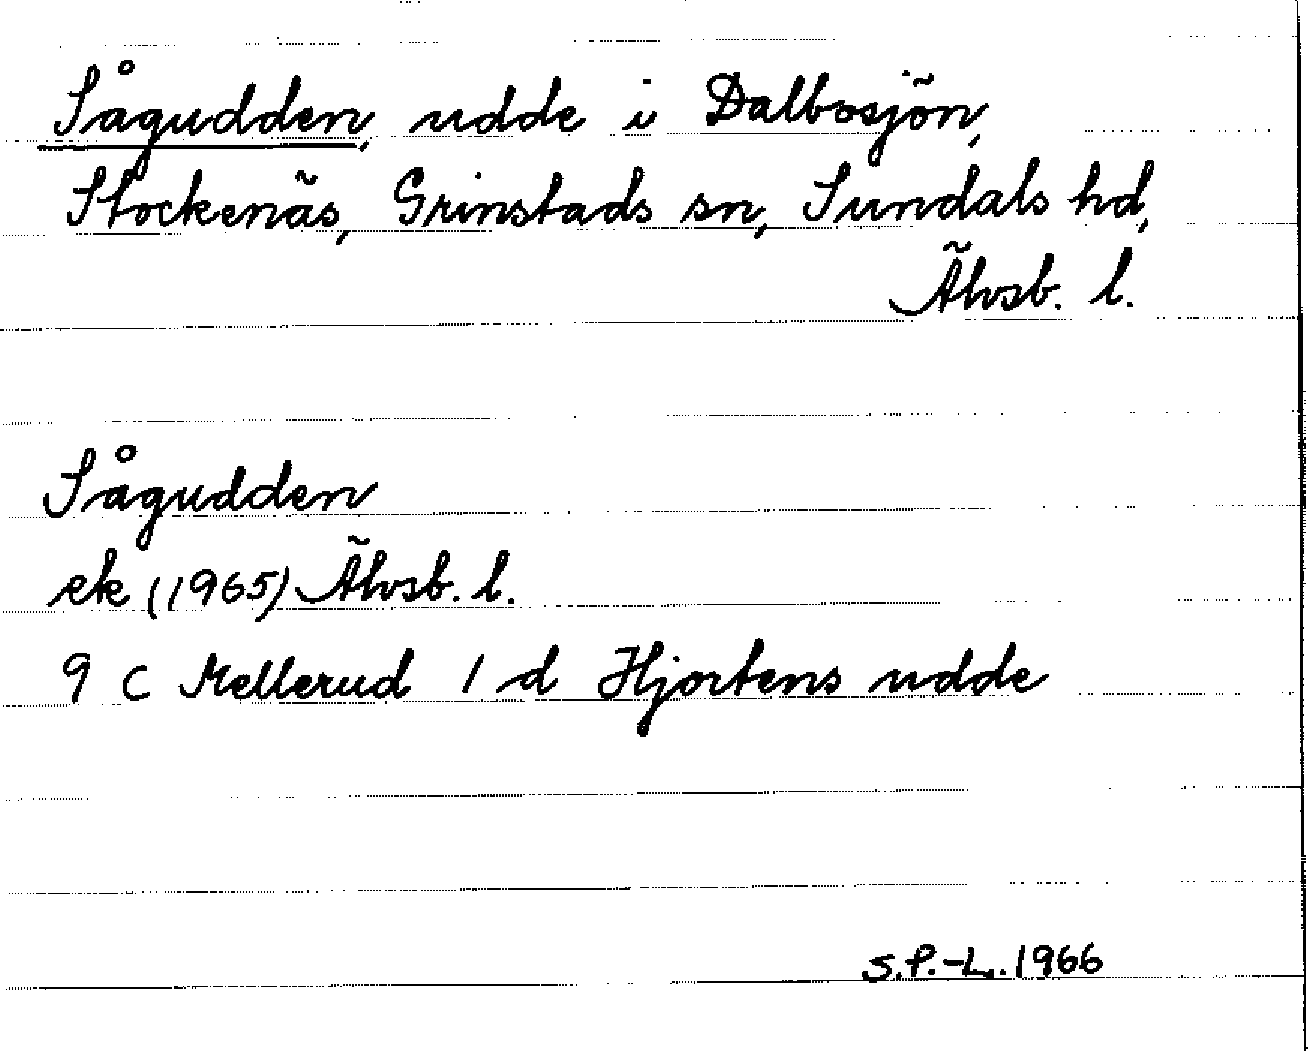 Sågudden, udde i Dalbosjön,
Stockenäs, Grinstads sn, Sundals hd,
Älvsb. l.
Sågudden
ek (1965) Älvsb. l.
9 C Mellerud 1 d Hjortens udde
S.P.-L. 1966